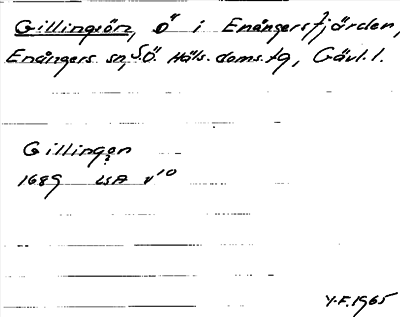 Gillingsön, ö i Enångersfjärden,
Enångers sn, S.Ö. Häls. doms. tg, Gävl. l.
Gillingon
1689 LSA
Y.F. 1965